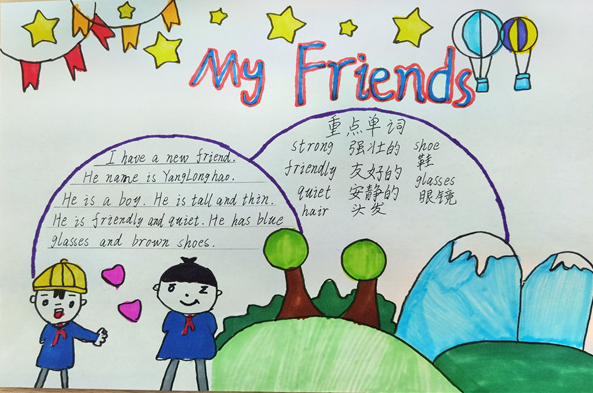 My Friends
I have a new friend.
He name is YangLonghao.
He is a boy. He is tall and thin.
He is friendly and quiet. He has blue
glasses and brown shoes.
重点单词
strong 强壮的
friendly 友好的
quiet 安静的
hair 头发
shoe
鞋
glasses
眼镜